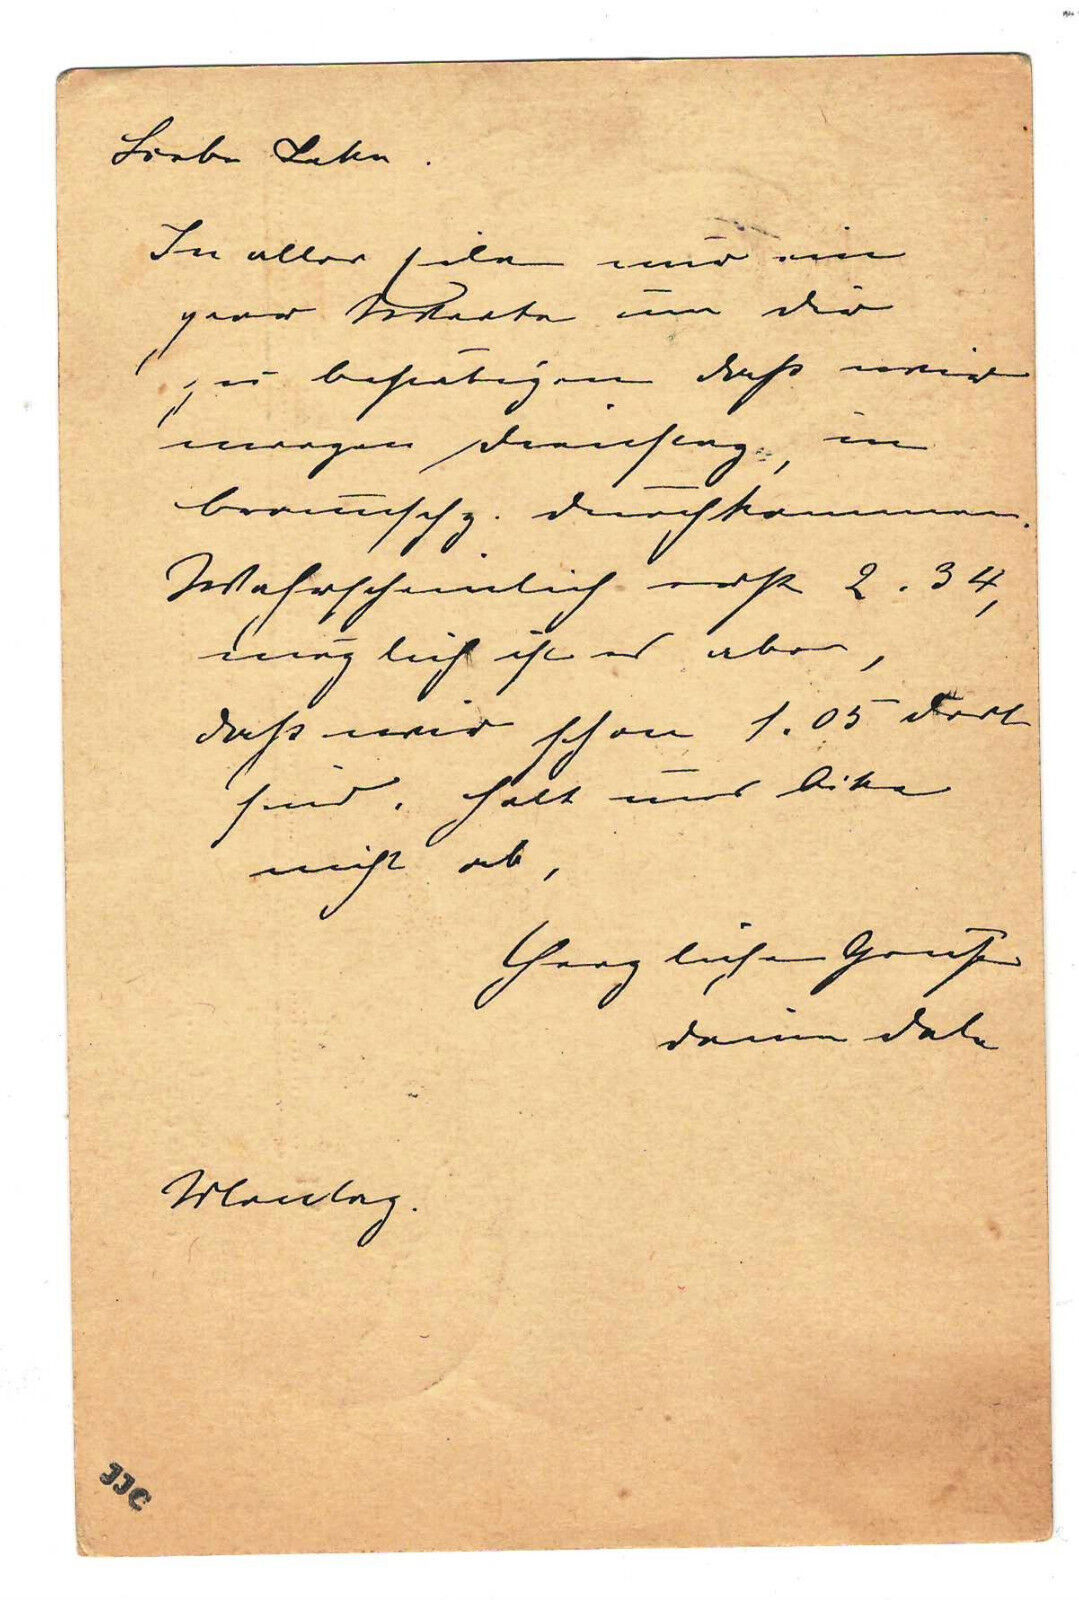 Liebe
In aller Eile nur ein
paar Worte um dir
zu bestätigen daß wir
morgen Dienstag, in
Braunschg. durchkommen.
Wahrscheinlich erst 2.34,
möglich ist es aber,
daß wir schon 1.05 dort
sind. Holt uns bitte
nicht ab,
Herzliche Grüße
deine
Montag.
JJC